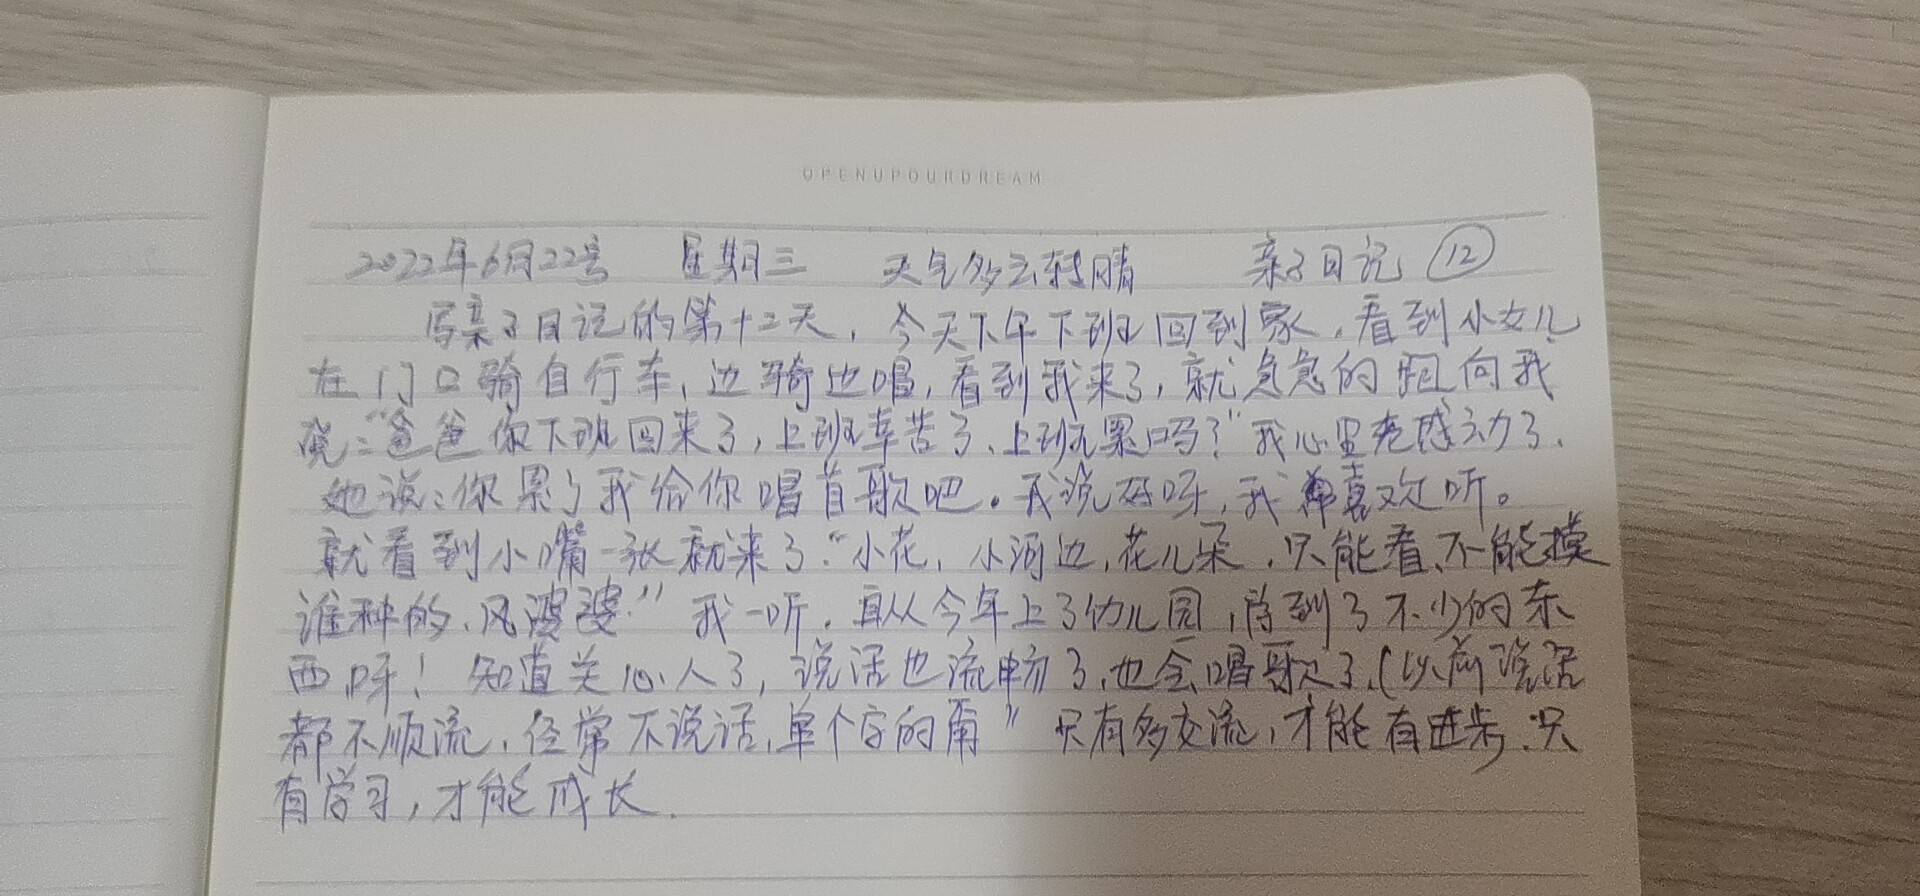 OPENUPOURDREAM
2022年6月22号 星期三 天气多云转晴 亲子日记 ⑫
写亲子日记的第十二天，今天下午下班回到家，看到小女儿
在门口骑自行车，边骑边唱，看到我来了，就急急的跑向我
说："爸爸你下班回来了，上班辛苦了、上班累吗？"我心里老感动了、
她说：你累了我给你唱首歌吧。我说好呀，我喜欢听。
就看到小嘴一张就来了"小花，小河边，花儿朵，只能看、不能摸
谁种的、风婆婆" 我一听，自从今年上了幼儿园，学到了不少的东
西呀！知道关心人了，说话也流畅了、也会唱歌了、（以前说话
都不顺流，经常不说话、单个字的" 只有多交流，才能有进步、只
有学习，才能成长.